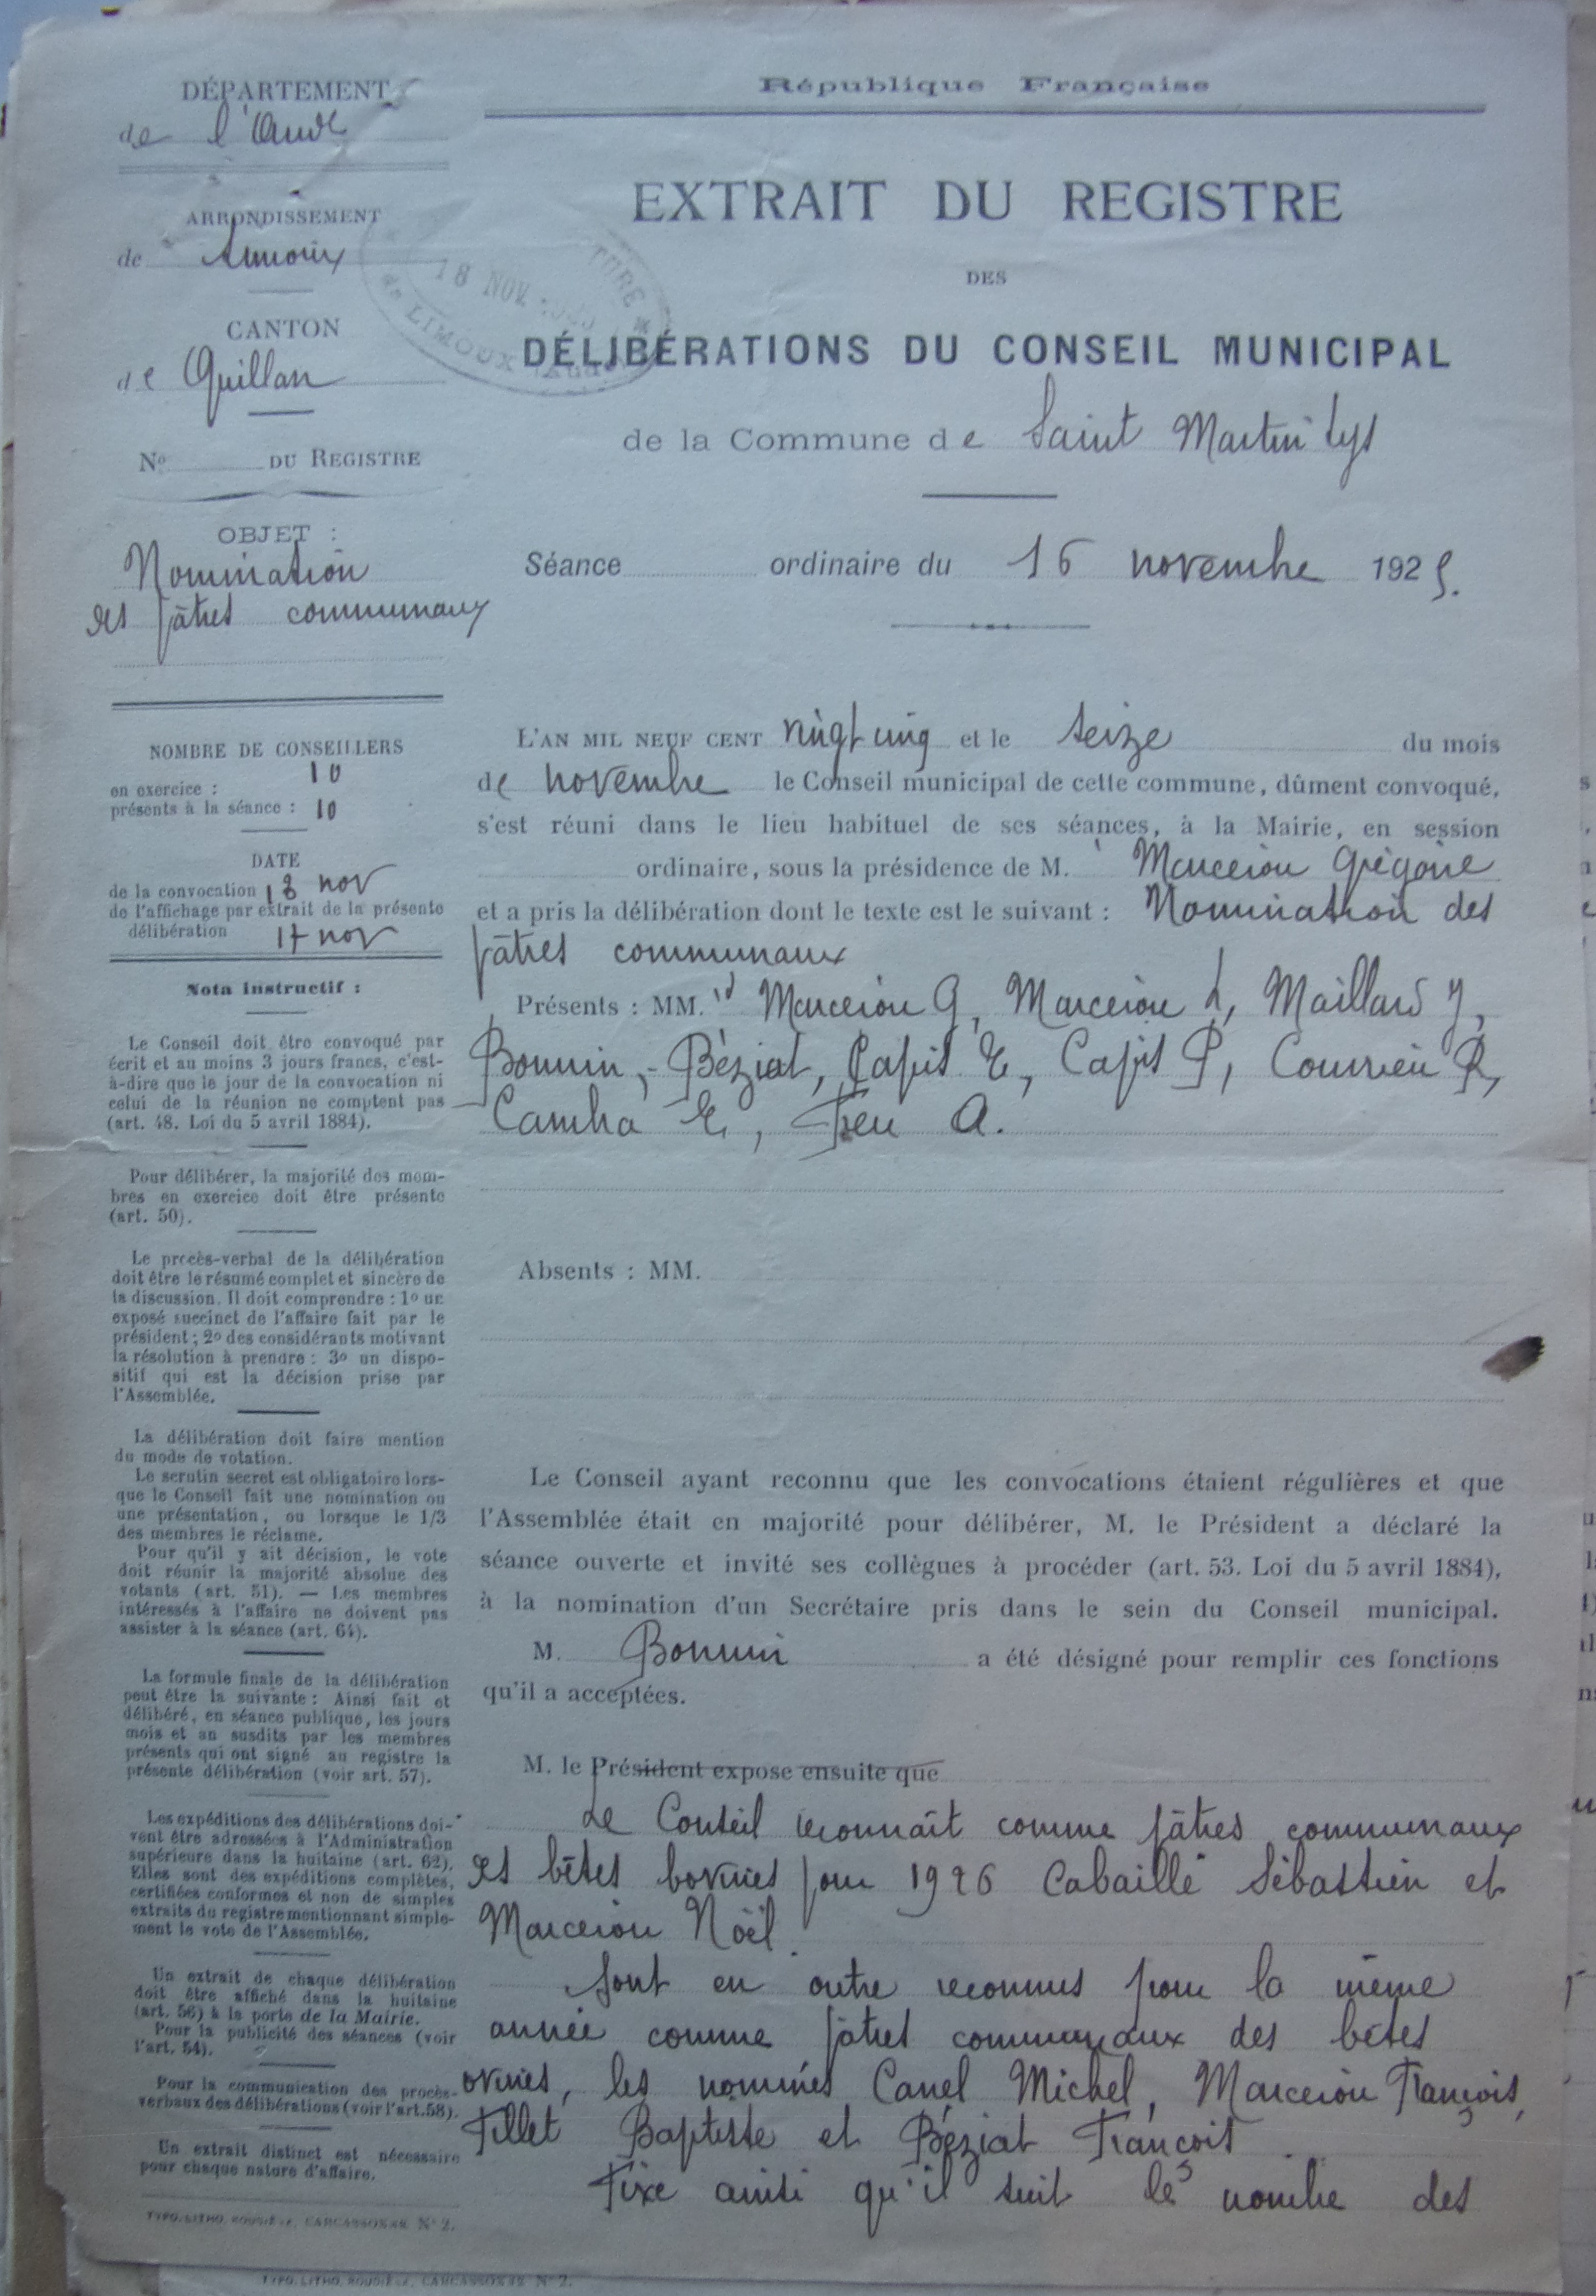 République Française
DÉPARTEMENT
de l'Aude
ARRONDISSEMENT
de Limoux
CANTON
de Quillan
No DU REGISTRE
OBJET :
Nomination
des pâtres communaux
NOMBRE DE CONSEILLERS
en exercice : 10
présents à la séance : 10
DATE
de la convocation 13 nov
de l'affichage par extrait de la présente
délibération 17 nov
Nota instructif :
Le Conseil doit être convoqué par
écrit et au moins 3 jours francs, c'est-
à-dire que le jour de la convocation ni
celui de la réunion ne comptent pas
(art. 48. Loi du 5 avril 1884).
Pour délibérer, la majorité des mem-
bres en exercice doit être présente
(art. 50).
Le procès-verbal de la délibération
doit être le résumé complet et sincère de
la discussion. Il doit comprendre : 1o un
exposé succinct de l'affaire fait par le
président ; 2o des considérants motivant
la résolution à prendre : 3o un dispo-
sitif qui est la décision prise par
l'Assemblée.
La délibération doit faire mention
du mode de votation.
Le scrutin secret est obligatoire lors-
que le Conseil fait une nomination ou
une présentation, ou lorsque le 1/3
des membres le réclame.
Pour qu'il y ait décision, le vote
doit réunir la majorité absolue des
votants (art. 51). — Les membres
intéressés à l'affaire ne doivent pas
assister à la séance (art. 64).
La formule finale de la délibération
peut être la suivante : Ainsi fait et
délibéré, en séance publique, les jours
mois et an susdits par les membres
présents qui ont signé au registre la
présente délibération (voir art. 57).
Les expéditions des délibérations doi-
vent être adressées à l'Administration
supérieure dans la huitaine (art. 62).
Elles sont des expéditions complètes,
certifiées conformes et non de simples
extraits du registre mentionnant simple-
ment le vote de l'Assemblée.
Un extrait de chaque délibération
doit être affiché dans la huitaine
(art. 56) à la porte de la Mairie.
Pour la publicité des séances (voir
l'art. 54).
Pour la communication des procès-
verbaux des délibérations (voir l'art. 58).
Un extrait distinct est nécessaire
pour chaque nature d'affaire.
TYPO. LITHO. ROUDIÈRE, CARCASSONNE No 2.
18 NOV
TURE
de LIMOUX
EXTRAIT DU REGISTRE
DES
DÉLIBÉRATIONS DU CONSEIL MUNICIPAL
de la Commune de Saint Martin Lys
Séance ordinaire du 16 novembre 1925.
L'AN MIL NEUF CENT vingt cinq et le seize du mois
de novembre le Conseil municipal de cette commune, dûment convoqué,
s'est réuni dans le lieu habituel de ses séances, à la Mairie, en session
ordinaire, sous la présidence de M. Marcerou Grégoire
et a pris la délibération dont le texte est le suivant : Nomination des
pâtres communaux
Présents : MM. Marcerou G, Marcerou L, Maillard J,
Bonnin, Béziat, Capis E, Capis P, Courrieu R,
Cambra E, Feu A.
Absents : MM.
Le Conseil ayant reconnu que les convocations étaient régulières et que
l'Assemblée était en majorité pour délibérer, M. le Président a déclaré la
séance ouverte et invité ses collègues à procéder (art. 53. Loi du 5 avril 1884),
à la nomination d'un Secrétaire pris dans le sein du Conseil municipal.
M. Bonnin a été désigné pour remplir ces fonctions
qu'il a acceptées.
M. le Président expose ensuite que
Le Conseil reconnaît comme pâtres communaux
des bêtes bovines pour 1926 Cabaillé Sébastien et
Marcerou Noël.
Sont en outre reconnus pour la même
année comme pâtres communaux des bêtes
ovines, les nommés Canel Michel, Marcerou François,
Tillet Baptiste et Béziat François.
Fixe ainsi qu'il suit le nombre des
TYPO. LITHO. ROUDIÈRE, CARCASSONNE No 2.